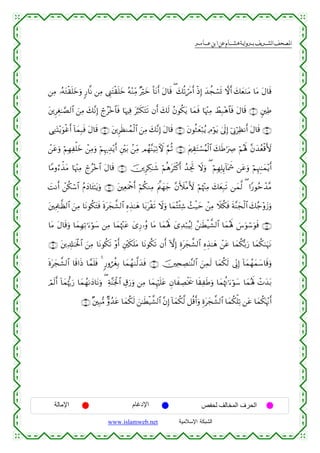 المصحف الشريف برواية هشام عن ابن عامر
قَالَ مَا مَنَعَكَ أَلَّا تَسْجُدَ إِذْ أَمَرْتُكَ ۖ قَالَ أَنَا۠ خَيْرٌ مِّنْهُ خَلَقْتَنِى مِن نَّارٍ وَخَلَقْتَهُۥ مِن
طِينٍ ۝ قَالَ فَٱهْبِطْ مِنْهَا فَمَا يَكُونُ لَكَ أَن تَتَكَبَّرَ فِيهَا فَٱخْرُجْ إِنَّكَ مِنَ ٱلصَّٰغِرِينَ
۝ قَالَ أَنظِرْنِىٓ إِلَىٰ يَوْمِ يُبْعَثُونَ ۝ قَالَ إِنَّكَ مِنَ ٱلْمُنظَرِينَ ۝ قَالَ فَبِمَآ أَغْوَيْتَنِى
لَأَقْعُدَنَّ لَهُمْ صِرَٰطَكَ ٱلْمُسْتَقِيمَ ۝ ثُمَّ لَءَاتِيَنَّهُم مِّنۢ بَيْنِ أَيْدِيهِمْ وَمِنْ خَلْفِهِمْ وَعَنْ
أَيْمَٰنِهِمْ وَعَن شَمَآئِلِهِمْ ۖ وَلَا تَجِدُ أَكْثَرَهُمْ شَٰكِرِينَ ۝ قَالَ ٱخْرُجْ مِنْهَا مَذْءُومًا
مَّدْحُورًا ۖ لَّمَن تَبِعَكَ مِنْهُمْ لَأَمْلَأَنَّ جَهَنَّمَ مِنكُمْ أَجْمَعِينَ ۝ وَيَٰٓـَٔادَمُ ٱسْكُنْ أَنتَ
وَزَوْجُكَ ٱلْجَنَّةَ فَكُلَا مِنْ حَيْثُ شِئْتُمَا وَلَا تَقْرَبَا هَٰذِهِ ٱلشَّجَرَةَ فَتَكُونَا مِنَ ٱلظَّٰلِمِينَ
۝ فَوَسْوَسَ لَهُمَا ٱلشَّيْطَٰنُ لِيُبْدِىَ لَهُمَا مَا وُۥرِىَ عَنْهُمَا مِن سَوْءَٰتِهِمَا وَقَالَ مَا
نَهَىٰكُمَا رَبُّكُمَا عَنْ هَٰذِهِ ٱلشَّجَرَةِ إِلَّآ أَن تَكُونَا مَلَكَيْنِ أَوْ تَكُونَا مِنَ ٱلْخَٰلِدِينَ ۝
وَقَاسَمَهُمَآ إِنِّى لَكُمَا لَمِنَ ٱلنَّٰصِحِينَ ۝ فَدَلَّىٰهُمَا بِغُرُورٍ ۚ فَلَمَّا ذَاقَا ٱلشَّجَرَةَ
بَدَتْ لَهُمَا سَوْءَٰتُهُمَا وَطَفِقَا يَخْصِفَانِ عَلَيْهِمَا مِن وَرَقِ ٱلْجَنَّةِ ۖ وَنَادَىٰهُمَا رَبُّهُمَآ أَلَمْ
أَنْهَكُمَا عَن تِلْكُمَا ٱلشَّجَرَةِ وَأَقُل لَّكُمَآ إِنَّ ٱلشَّيْطَٰنَ لَكُمَا عَدُوٌّ مُّبِينٌ ۝
الحرف المخالف لحفص الإدغام الإمالة
الشبكة الإسلامية www.islamweb.net